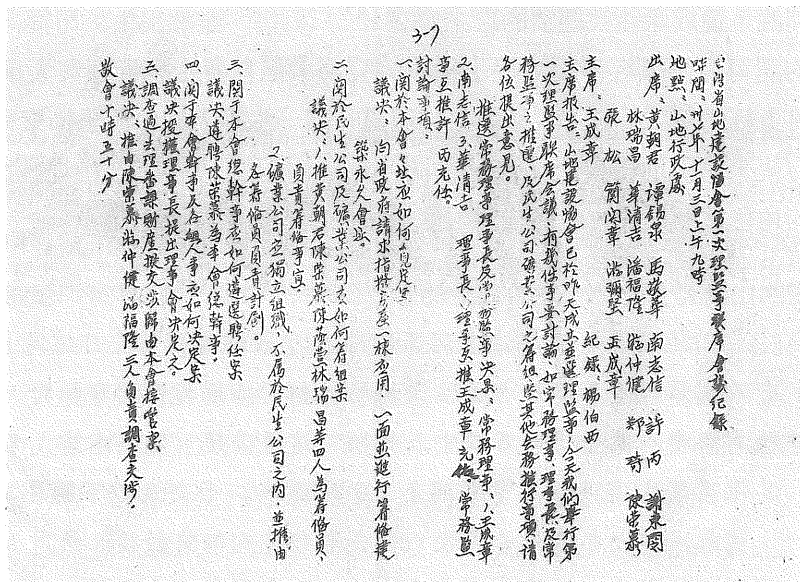 3-7
台灣省山地建設協會第一次理監事聯席會議紀錄
時間、卅七年十月三日上午九時
地點、山地行政處
出席、黃朝君 譚錫泉 馬發華 南志信 許丙 謝東閔
林瑞昌 華清吉 潘福隆 仲健 鄭 陳棠棻
張松 簡閑韋 游彌堅 王成章
主席、王成章 紀錄、楊伯西
主席報告、山地建設協會已於昨天成立並選理監事，今天我們舉行第
一次理監事聯席會議，有幾件事要討論，如常務理事、理事長及常
務監事之推選及民生公司礦業公司之籌組與其他會務推行事項請
各位提出意見。
推選常務理事理事長及常務監事決果、常務理事、1、王成章
2、南志信 3、華清吉 理事長、理事互推王成章充任。常務監
事互推許丙充任。
討論事項、
一、關於本會會址應如何
議決、向省政府請求指撥一棟應用，一面並進行籌備建
築永久會址。
二、關於民生公司及礦業公司應如何籌組案
議決、1、推黃朝君陳棠棻林瑞昌等四人為籌備員，
負責籌備事宜。
2、礦業公司應獨立組織，不屬於民生公司之內，並推由
各籌備員負責計劃。
三、關于本會總幹事應如何遴選聘任案
議決遴聘陳棠棻為本會總幹事。
四、關于本會幹事及各組人事應如何決定案
議決授權理事長提出理事會決定之。
五、調查過去理蕃課財產擬交涉歸由本會接管案
議決、推由陳棠棻仲健潘福隆三人負責調查交涉。
散會十時五十分